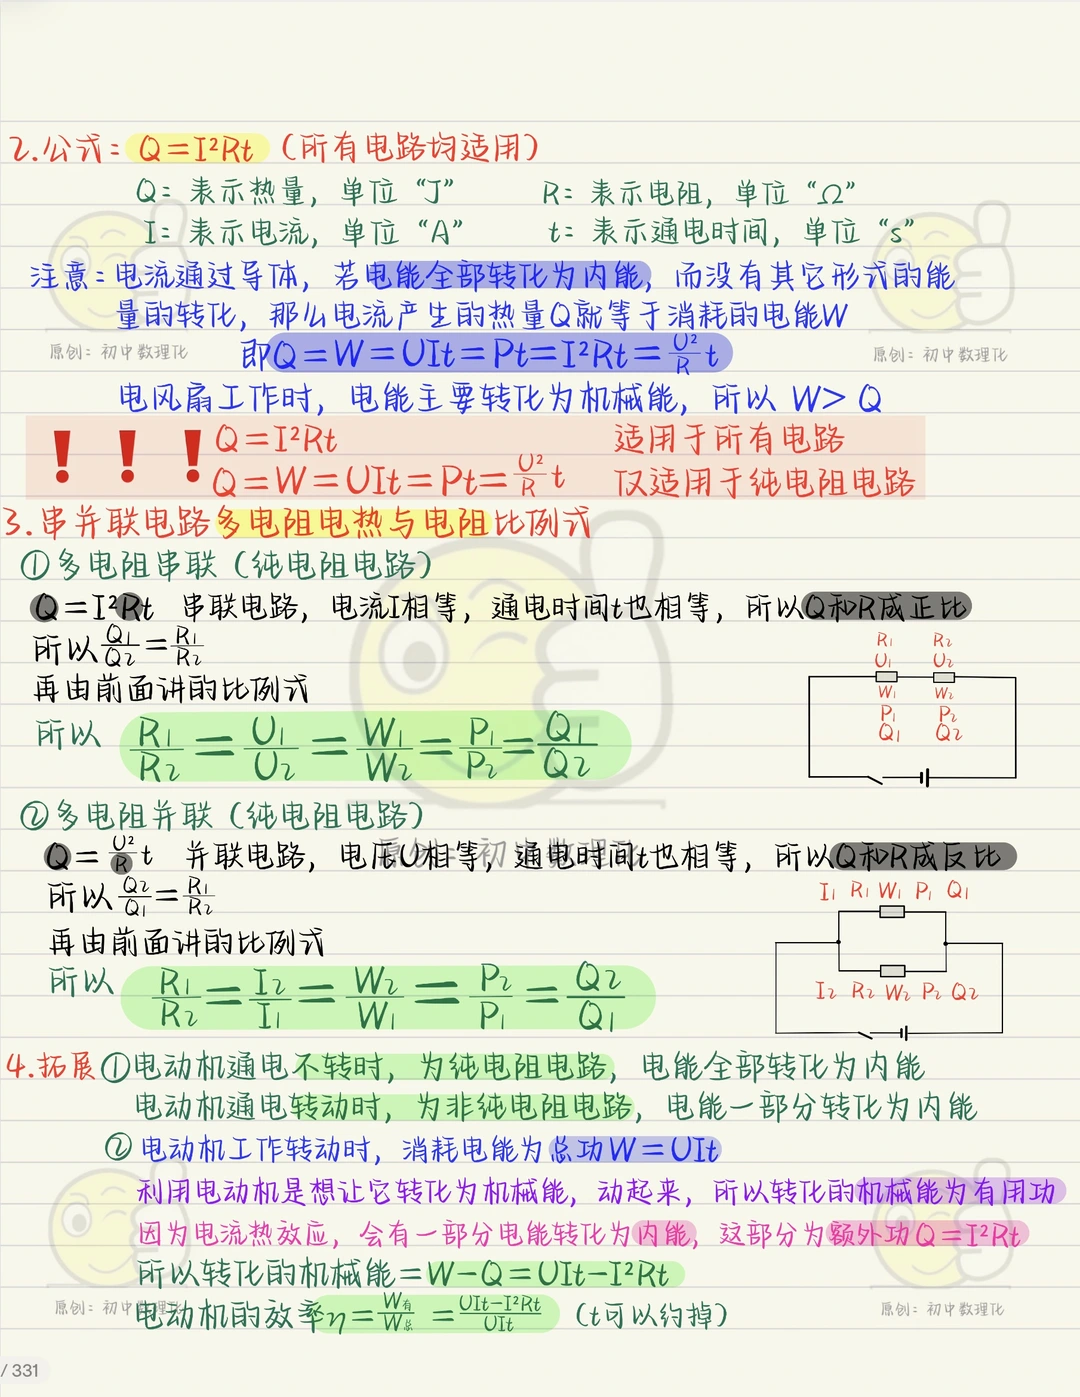 2.公式：Q=I²Rt（所有电路均适用）
Q：表示热量，单位“J” R：表示电阻，单位“Ω”
I：表示电流，单位“A” t：表示通电时间，单位“s”
注意：电流通过导体，若电能全部转化为内能，而没有其它形式的能
量的转化，那么电流产生的热量Q就等于消耗的电能W
原创：初中数理化 原创：初中数理化
即Q=W=UIt=Pt=I²Rt=U²/R t
电风扇工作时，电能主要转化为机械能，所以 W>Q
❗❗❗Q=I²Rt 适用于所有电路
Q=W=UIt=Pt=U²/R t 仅适用于纯电阻电路
3.串并联电路多电阻电热与电阻比例式
①多电阻串联（纯电阻电路）
Q=I²Rt 串联电路，电流I相等，通电时间t也相等，所以Q和R成正比
所以Q₁/Q₂=R₁/R₂
再由前面讲的比例式
所以 R₁/R₂=U₁/U₂=W₁/W₂=P₁/P₂=Q₁/Q₂
R₁ R₂
U₁ U₂
W₁ W₂
P₁ P₂
Q₁ Q₂
②多电阻并联（纯电阻电路）
原创：初中数理化
Q=U²/R t 并联电路，电压U相等，通电时间t也相等，所以Q和R成反比
所以Q₂/Q₁=R₁/R₂
再由前面讲的比例式
所以 R₁/R₂=I₂/I₁=W₂/W₁=P₂/P₁=Q₂/Q₁
I₁ R₁ W₁ P₁ Q₁
I₂ R₂ W₂ P₂ Q₂
4.拓展①电动机通电不转时，为纯电阻电路，电能全部转化为内能
电动机通电转动时，为非纯电阻电路，电能一部分转化为内能
②电动机工作转动时，消耗电能为总功W=UIt
利用电动机是想让它转化为机械能，动起来，所以转化的机械能为有用功
因为电流热效应，会有一部分电能转化为内能，这部分为额外功Q=I²Rt
所以转化的机械能=W-Q=UIt-I²Rt
原创：初中数理化 原创：初中数理化
电动机的效率η=W有/W总=UIt-I²Rt/UIt（t可以约掉）
/ 331